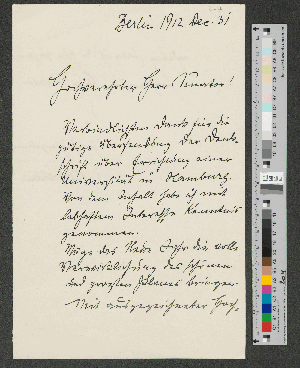 Berlin 1912 Dez. 31
Hochverehrter Herr Senator!
Verbindlichsten Dank für die
gütige Übersendung der Denk-
schrift über Errichtung einer
Universität in Hamburg.
Von dem Inhalt habe ich mit
lebhaftem Interesse Kenntnis
genommen.
Möge das Neue Jahr die volle
Verwirklichung des schönen
und großen Planes bringen.
Mit ausgezeichneter Hoch-